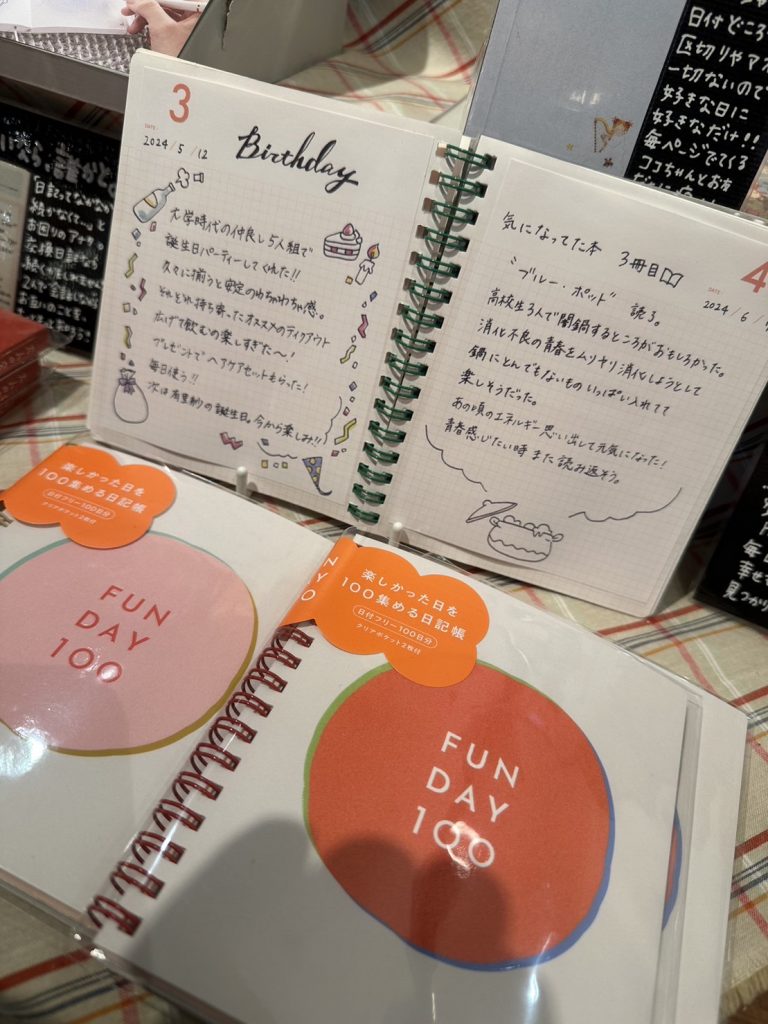 3
DATE
2024/5/12
Birthday
大学時代の仲良し5人組で
誕生日パーティーしてくれた!!
久々に揃うと安定のわちゃわちゃ感。
それぞれ持ち寄ったオススメのテイクアウト
広げて飲むの楽しすぎた〜!
プレゼントでヘアケアセットもらった!
毎日使う!!
次は有里紗の誕生日。今から楽しみ!!
4
DATE
2024/6/
気になってた本 3冊目
"ブルー・ポッド" 読了。
高校生3人で闇鍋するところがおもしろかった。
消化不良の青春をムリヤリ消化しようとして
鍋にとんでもないものいっぱい入れてて
楽しそうだった。
あの頃のエネルギー思い出して元気になった!
青春感じたい時また読み返そう。
日付どころ
区切りやア
一切ないので
好きな日に
好きなだけ!!
毎ページでてくる
ココちゃんとお
日記ってなかなか
続かなくて...と
お困りのアナタ
楽しかった日を
100集める日記帳
日付フリー100日分
クリアポケット2枚付
FUN
DAY
100
楽しかった日を
100集める日記帳
日付フリー100日分
クリアポケット2枚付
FUN
DAY
100
毎日
幸せ
見つかり